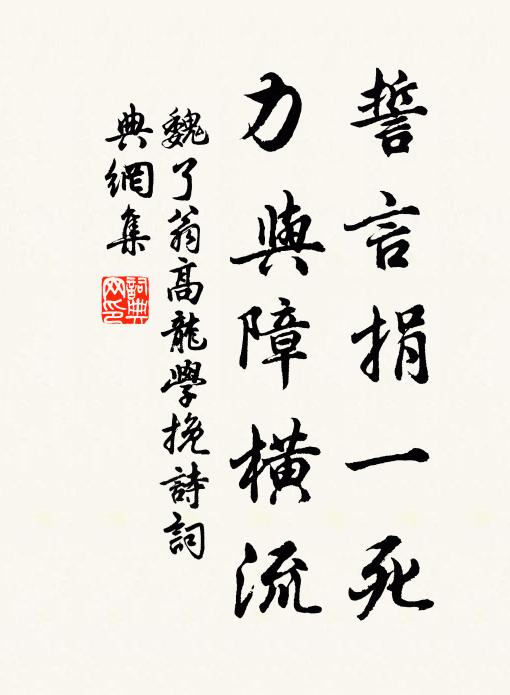 誓言捐一死
力與障橫流
魏了翁高龍學挽詩詞
典網集
詞典網印